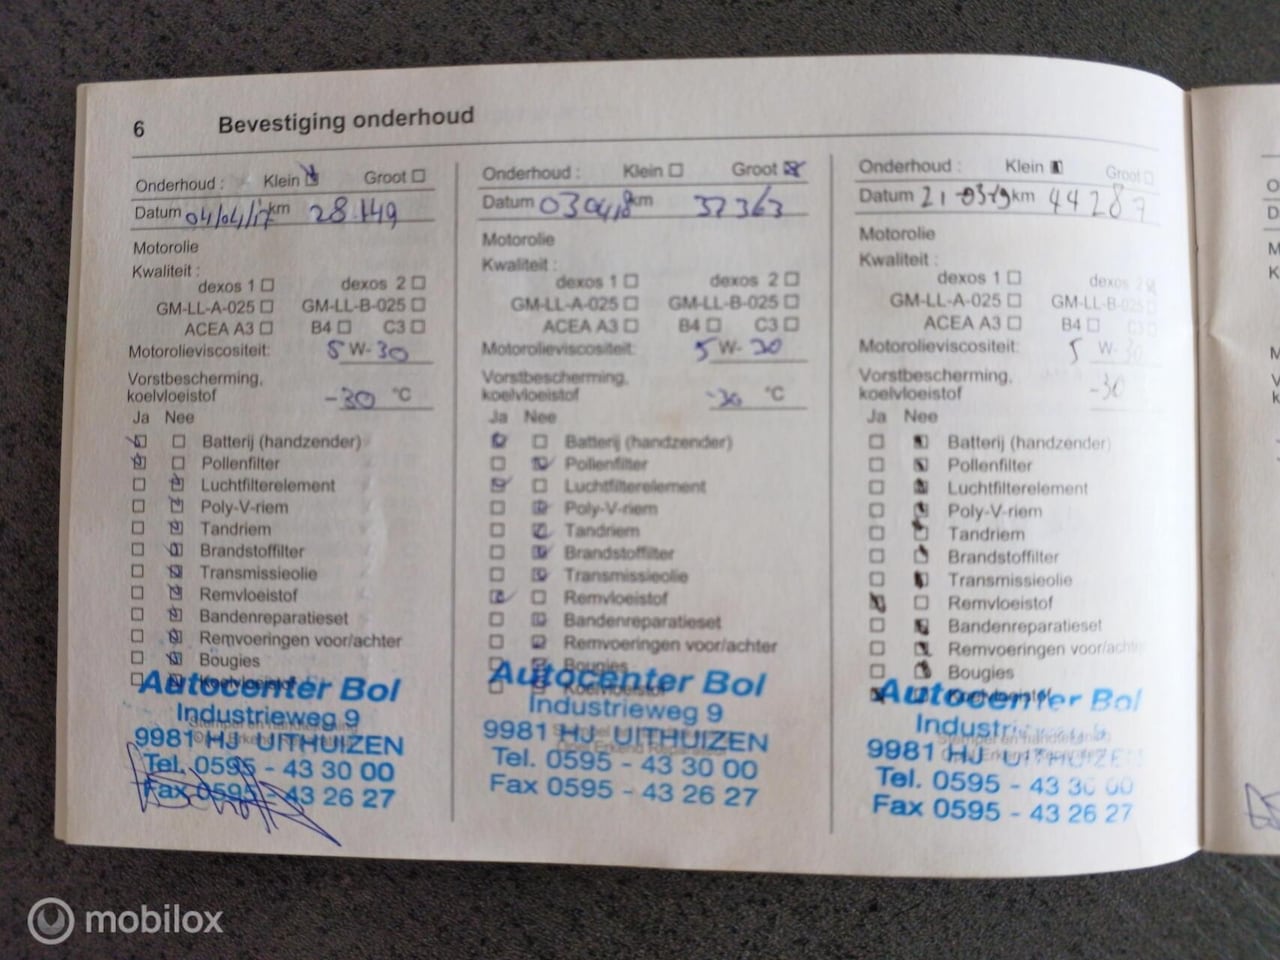 6 Bevestiging onderhoud
Onderhoud : Klein Groot
Datum 04/04/17 km 28149
Motorolie
Kwaliteit :
dexos 1 dexos 2
GM-LL-A-025 GM-LL-B-025
ACEA A3 B4 C3
Motorolieviscositeit: 5 W-30
Vorstbescherming,
koelvloeistof -30 °C
Ja Nee
Batterij (handzender)
Pollenfilter
Luchtfilterelement
Poly-V-riem
Tandriem
Brandstoffilter
Transmissieolie
Remvloeistof
Bandenreparatieset
Remvoeringen voor/achter
Bougies
Koelvloeistof
Autocenter Bol
Industrieweg 9
9981 HJ UITHUIZEN
Tel. 0595 - 43 30 00
Fax 0595 - 43 26 27
Onderhoud : Klein Groot
Datum 030418 km 37363
Motorolie
Kwaliteit :
dexos 1 dexos 2
GM-LL-A-025 GM-LL-B-025
ACEA A3 B4 C3
Motorolieviscositeit: 5 W-30
Vorstbescherming,
koelvloeistof -30 °C
Ja Nee
Batterij (handzender)
Pollenfilter
Luchtfilterelement
Poly-V-riem
Tandriem
Brandstoffilter
Transmissieolie
Remvloeistof
Bandenreparatieset
Remvoeringen voor/achter
Bougies
Koelvloeistof
Autocenter Bol
Industrieweg 9
9981 HJ UITHUIZEN
Tel. 0595 - 43 30 00
Fax 0595 - 43 26 27
Onderhoud : Klein Groot
Datum 21-0319 km 44287
Motorolie
Kwaliteit :
dexos 1 dexos 2
GM-LL-A-025 GM-LL-B-025
ACEA A3 B4 C3
Motorolieviscositeit: 5 W-30
Vorstbescherming,
koelvloeistof -30
Ja Nee
Batterij (handzender)
Pollenfilter
Luchtfilterelement
Poly-V-riem
Tandriem
Brandstoffilter
Transmissieolie
Remvloeistof
Bandenreparatieset
Remvoeringen voor/achter
Bougies
Koelvloeistof
Autocenter Bol
Industrieweg 9
9981 HJ UITHUIZEN
Tel. 0595 - 43 30 00
Fax 0595 - 43 26 27
mobilox